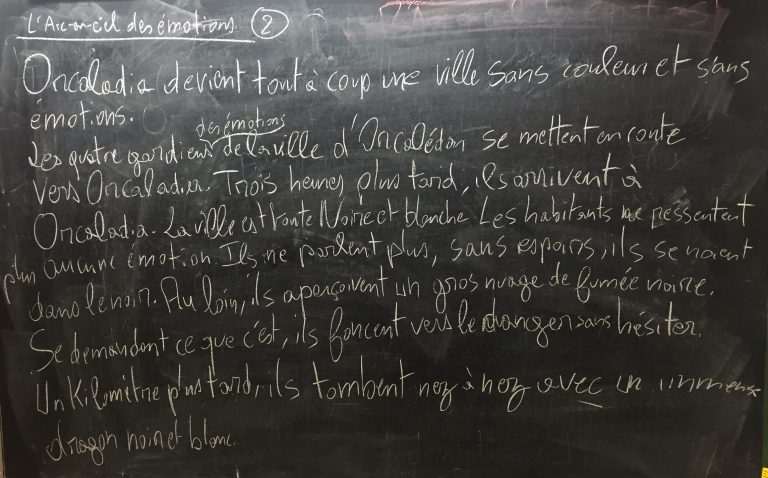 L'Arc-en-ciel des émotions. 2
Oncaladia devient tout à coup une ville sans couleur et sans
émotions.
des émotions
Les quatre gardiens de la ville d'Oncalédon se mettent en route
vers Oncaladia. Trois heures plus tard, ils arrivent à
Oncaladia. La ville est toute Noire et blanche. Les habitants ne ressentent
plus aucune émotion. Ils ne parlent plus, sans espoirs, ils se noient
dans le noir. Au loin, ils aperçoivent un gros nuage de fumée noire.
Se demandant ce que c'est, ils foncent vers le danger sans hésiter.
Un Kilomètre plus tard, ils tombent nez à nez avec un immense
dragon noir et blanc.